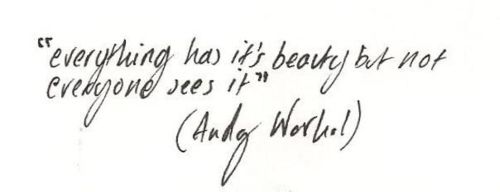 "everything has it's beauty but not
everyone sees it"
(Andy Warhol)